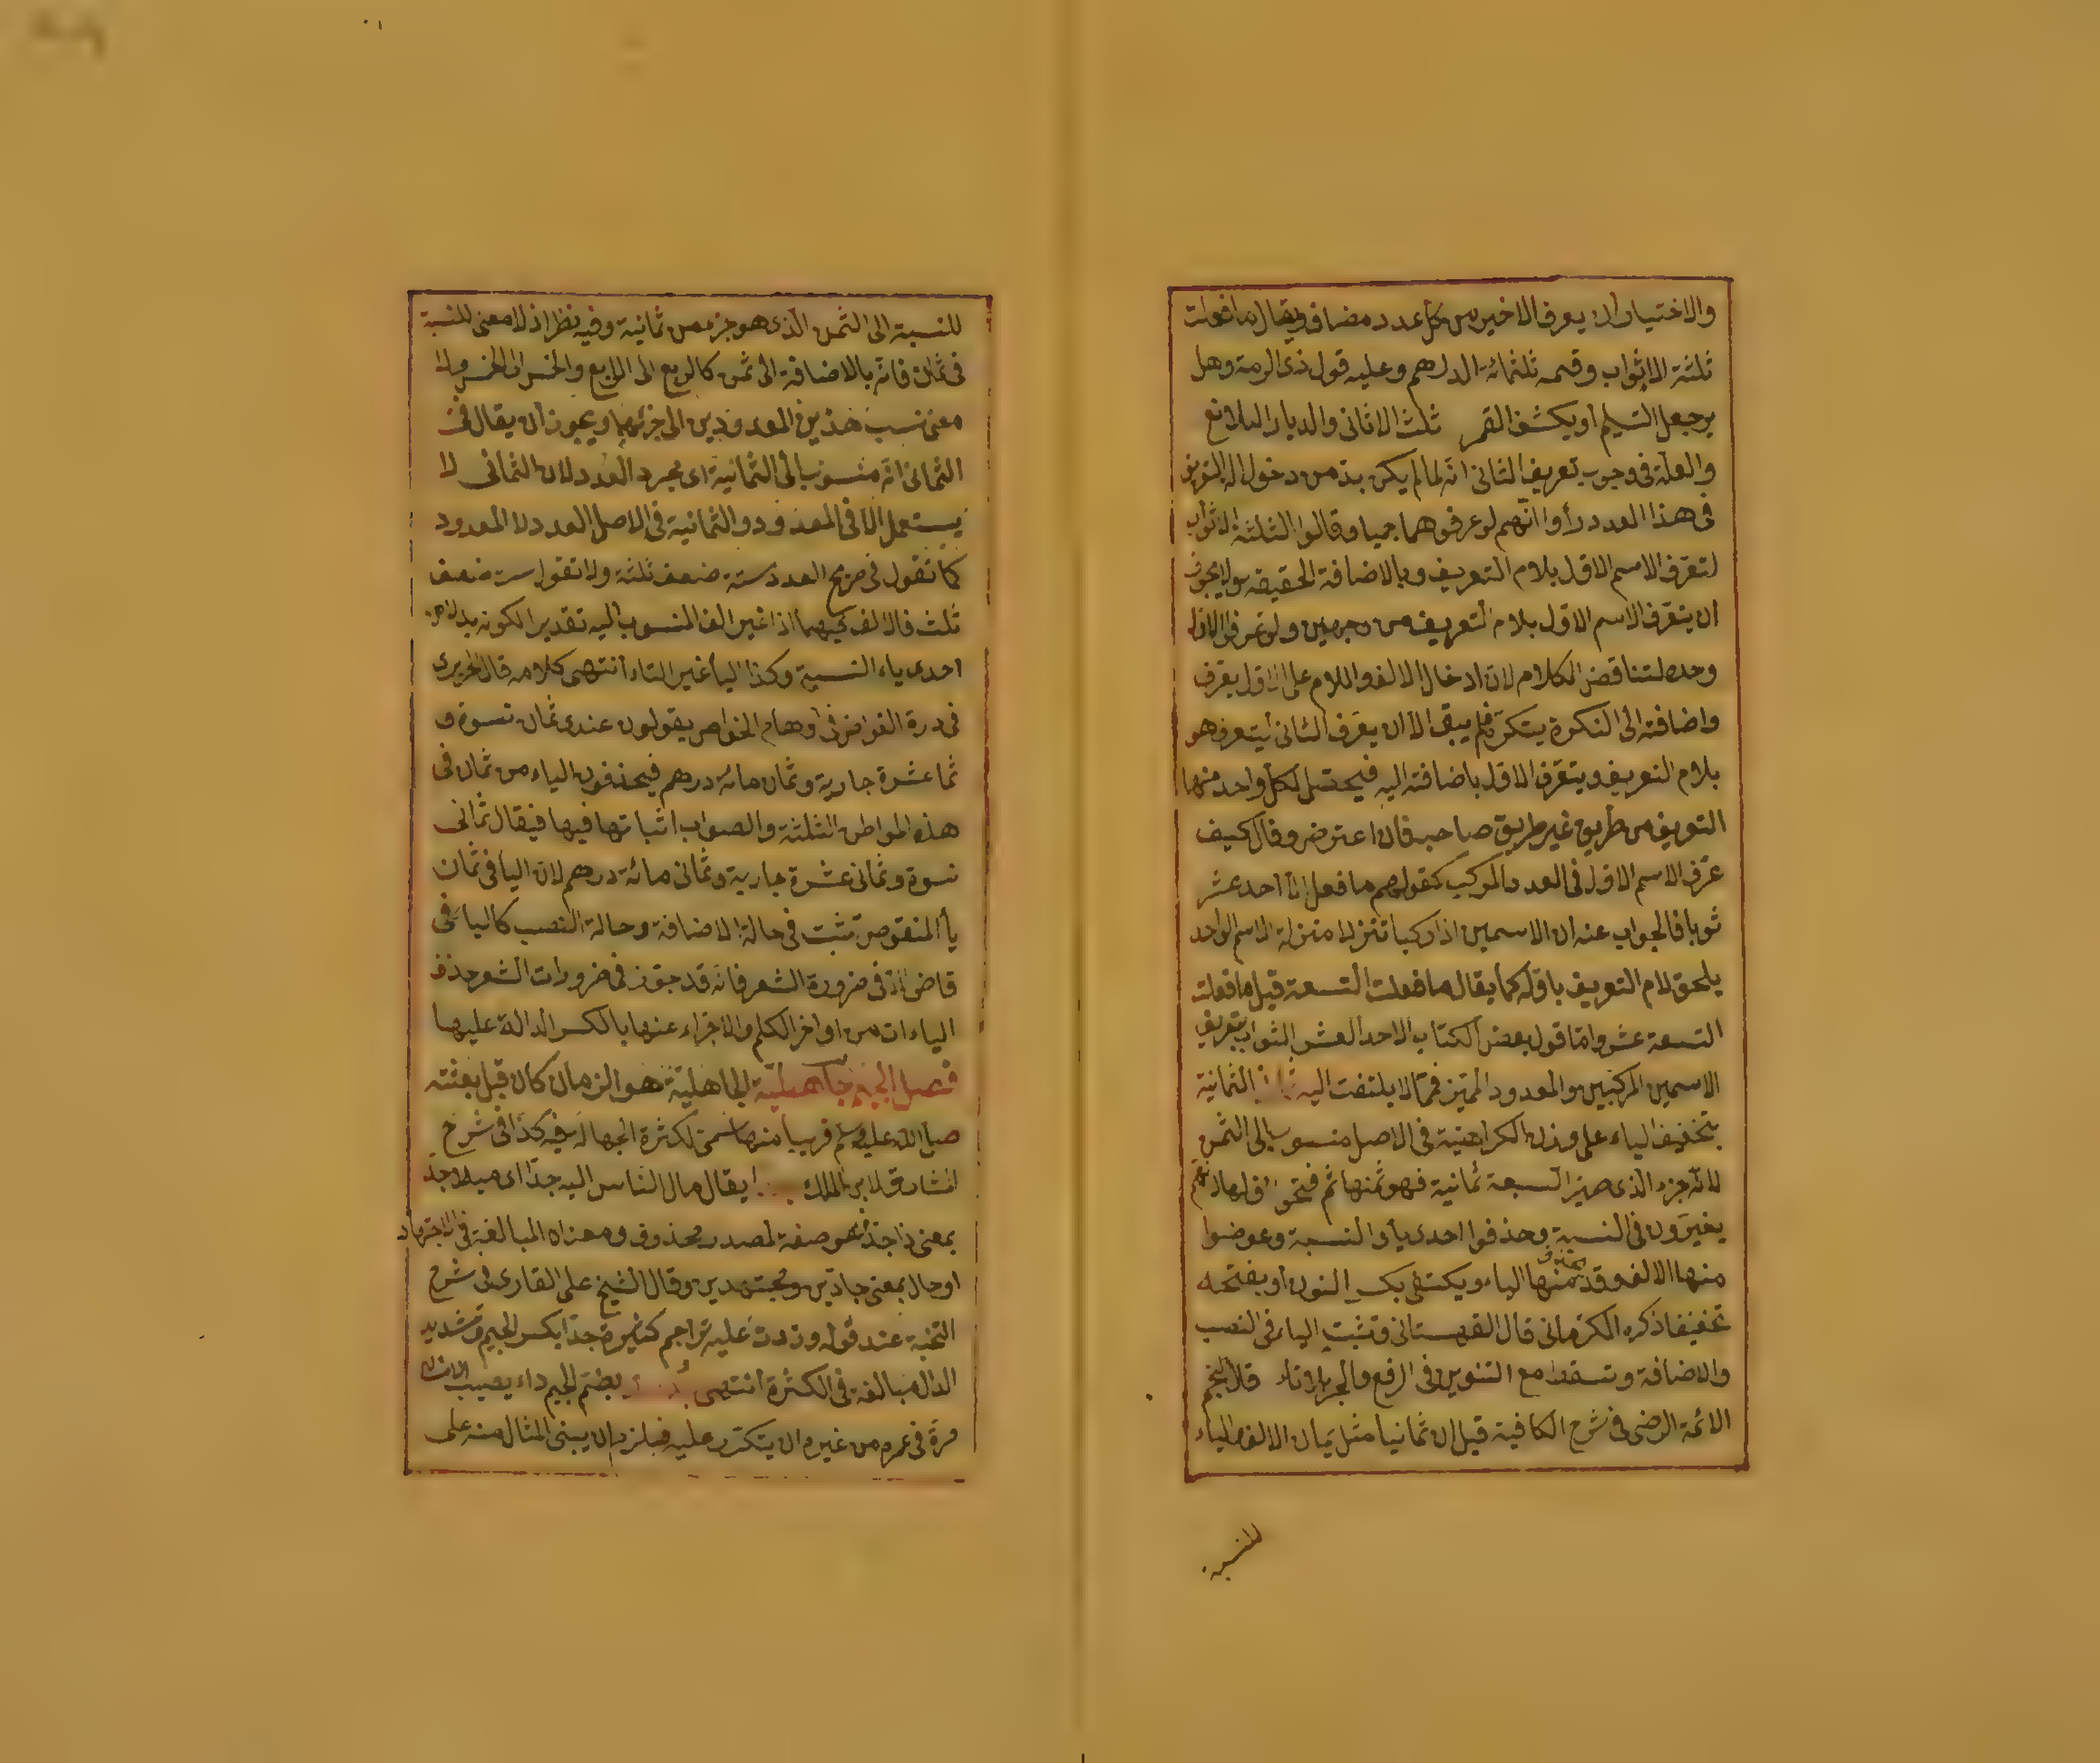 والاختيار ان يعرف الاخير من كل عدد مضاف فيقال ما فعلت
ثلثة الاثواب وقسمه ثلثمائة الدرهم وعليه قول ذى الرمة وهل
يرجع التسليم او يكشف ثلث الاثافى والديار البلاقع
والعلة فى وجوب تعريف الثانى انه لما لم يكن بد من دخول التعريف
فى هذا العدد رأوا انهم لو عرفوهما جميعا وقالوا الثلثة الاثواب
لتعرف الاسم الاول بلام التعريف وبالاضافة الحقيقة ولا يجوز
ان يتعرف الاسم الاول بلام التعريف من وجهين ولو عرف الاول
وحده لتناقض الكلام لان ادخال الالف واللام على الاول يعرف
واضافته الى النكرة يتنكر فلم يبق الا ان يعرف الثانى ليتعرف هو
بلام التعريف ويتعرف الاول باضافته اليه فيحصل لكل واحد منها
التعريف من طريق غير طريق صاحبه فان اعترض وقال كيف
عرف الاسم الاول فى العدد المركب كقولهم ما فعل احد عشر
ثوبا فالجواب عنه ان الاسمين اذا ركبا تنزلا منزلة الاسم الواحد
يلحق لام التعريف باوله كما يقال ما فعلت التسعة قيل ما فعلت
التسعة عشر واما قول بعض الكتاب الاحد العشر الثواب بتعريف
الاسمين المركبين والمعدود المميز فمما لا يلتفت اليه الثمانية
بتخفيف الياء على وزن الكراهية فى الاصل منسوب الى الثمن
لانه جزء الذى صير السبعة ثمانية فهو ثمنها ثم فتحوا اولها لانهم
يغيرون فى النسبة وحذفوا احدى ياء النسبة وعوضوا
منها الالف وقد يحذف منها الياء ويكتفى بكسر النون او بفتحه
تخفيفا ذكره الكرمانى قال القهستانى وتثبت الياء فى النصب
والاضافة وتسقط مع التنوين فى الرفع والجر قال نجم
الائمة الرضى فى شرح الكافية قيل ان ثمانيا مثل يمان الالف الياء
للنسبة
للنسبة الى الثمن الذى هو جزء من ثمانية وفيه نظر اذ لا معنى للنسبة
فى ثمان فانه بالاضافة الى ثمن كالربع الى الاربع والخمس الى الخمس ولا
معنى نسب هذين المعدودين الى جزئهما ويجوز ان يقال فى
الثمانى انه منسوب الى الثمانية اى مجرد العدد لان الثمانى لا
يستعمل الا فى المعدود والثمانية فى الاصل العدد لا المعدود
كما تقول فى صريح العدد ستة ضعف ثلثة ولا تقول ست ضعف
ثلث فالالف فيهما اذا غير الف المنسوب اليه تقدير الكونه بدلا من
احدى ياء النسبة وكذا الياء غير الياء انتهى كلامه قال الحريرى
فى درة الغواص فى اوهام الخواص يقولون عندى ثمان نسوة و
ثما عشرة جارية وثمان مائة درهم فيحذفون الياء من ثمان فى
هذه المواطن الثلثة والصواب اثباتها فيها فيقال ثمانى
نسوة وثمانى عشرة جارية وثمانى مائة درهم لان اليا فى ثمان
يأ المنقوص تثبت فى حالة الاضافة وحالة النصب كالياء فى
قاض اذ فى ضرورة الشعر فانه قد جوز فى ضرورات الشعر حذف
الياءات من اواخر الكلم والاجزاء عنها بالكسر الدالة عليها
فصل الجيم جاهلية الجاهلية هو الزمان كان قبل بعثته
صلى الله عليه وسلم قريبا منها سمى لكثرة الجهالة فيه كذا فى شرح
المشارق لابن الملك يقال مال الناس اليه جدا اى ميلا جد
بمعنى ذا جد فهو صفة لمصدر محذوف ومعناه المبالغة فى الاجتهاد
او حال بمعنى جادين ومجتهدين وقال الشيخ على القارى فى شرح
النخبة عند قوله وزدت عليه تراجم كثيرة جدا بكسر الجيم وتشديد
الدال مبالغة فى الكثرة انتهى بضم الجيم داء يصيب الانسان
مرة فى عمره من غير ان يتكرر عليه فيلزم ان يبنى المثال منه على